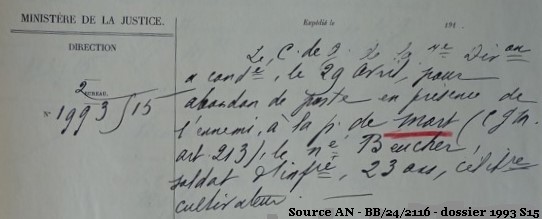 MINISTÈRE DE LA JUSTICE.
Expédié le 191
DIRECTION
2
BUREAU.
N° 1993 S 15
Le C. de g. de la
a condé, le 29 Avril, pour
abandon de poste en présence de
l'ennemi, à la p. de mort (Cjm.
art. 213), le né Beucher,
soldat d'infie, 23 ans, célibre
cultivateur.
Source AN - BB/24/2116 - dossier 1993 S15